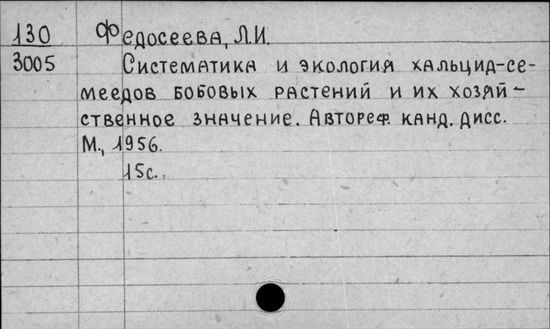 130 Федосеева, Л.И.
3005 Систематика и экология хальцид-се-
меедов бобовых растений и их хозяй-
ственное значение. Автореф. канд. дисс.
М., 1956.
15с.